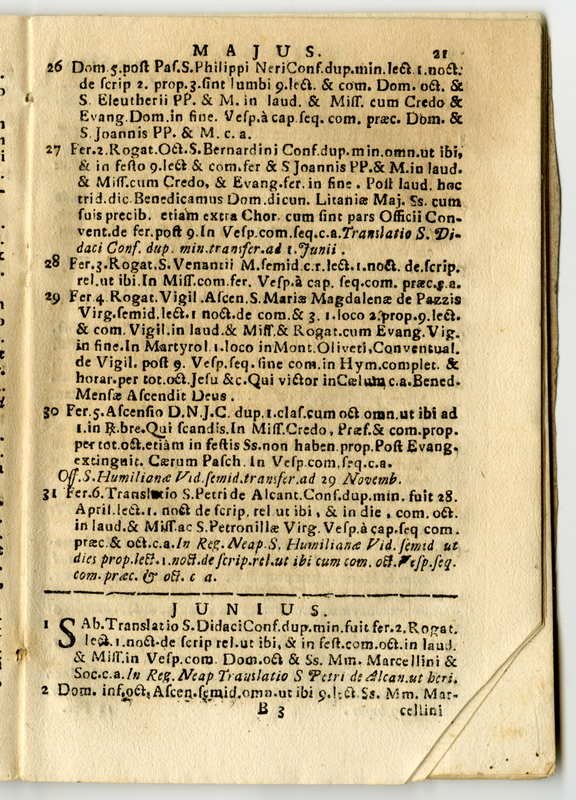 MAJUS. 21
26 Dom.5.post Pas.S.Philippi Neri Conf.dup.min.lect.1.noct.
de scrip 2. prop.3.sint lumbi 9.lect. & com. Dom. oct. &
S. Eleutherii PP. & M. in laud. & Miss. cum Credo &
Evang.Dom.in fine. Vesp.à cap.seq. com. præc. Dom. &
S.Joannis PP. & M. c. a.
27 Fer.2.Rogat.Oct.S.Bernardini Conf.dup.min.omn.ut ibi,
& in festo 9.lect & com.fer & S Joannis PP.& M.in laud.
& Miss.cum Credo, & Evang.fer.in fine . Post laud. hoc
trid.dic.Benedicamus Dom.dicun. Litaniæ Maj. Ss. cum
suis precib. etiam extra Chor. cum sint pars Officii Con-
vent.de fer.post 9.In Vesp.com.seq.c.a.Translatio S. Di-
daci Conf. dup. min.transfer.ad 1.Junii .
28 Fer.3.Rogat.S. Venantii M.semid.c.r.lect.1.noct. de.scrip.
rel.ut ibi.In Miss.com.fer. Vesp.à cap. seq.com. præc.c.a.
29 Fer 4. Rogat.Vigil.Ascen.S.Mariæ Magdalenæ de Pazzis
Virg.semid.lect.1 noct.de com.& 3. 1.loco 2.prop.9.lect.
& com. Vigil.in laud.& Miss.& Rogat.cum Evang.Vig.
in fine.In Martyrol 1.loco inMont.Oliveti,Conventual.
de Vigil. post 9. Vesp.seq.sine com.in Hym.complet. &
horar.per tot.oct.Jesu &c.Qui victor inCælum,c.a.Bened.
Mensæ Ascendit Deus .
30 Fer.5.Ascensio D.N.J.C. dup.1.clas.cum oct omn.ut ibi ad
1.in ℟.bre.Qui scandis.In Miss.Credo, Præf.& com.prop.
per tot.oct.etiàm in festis Ss.non haben.prop.Post Evang.
extinguit. Cærum Pasch. In Vesp.com.seq.c.a.
Off.S.Humilianæ Vid.semid.transfer.ad 29 Novemb.
31 Fer.6.Translatio S.Petri de Alcant.Conf.dup.min. fuit 28.
April.lect.1. noct de scrip. rel ut ibi , & in die , com. oct.
in laud.& Miss.ac S.Petronillæ Virg. Vesp.à cap.seq com.
præc.& oct.c.a.In Reg. Neap.S. Humilianæ Vid.semid ut
dies prop.lect.1.noct.de scrip.rel.ut ibi cum com. oct.Vesp.seq.
com.præc. & oct. c a.
JUNIUS.
1 SAb.Translatio S.DidaciConf.dup.min.fuit fer.2.Rogat.
lect.1.noct.de scrip rel.ut ibi, & in fest.com.oct.in laud.
& Miss.in Vesp.com. Dom.oct & Ss. Mm. Marcellini &
Soc.c.a.In Reg. Neap Translatio S Petri de Alcan.ut heri.
2 Dom. inf.oct. Ascen.semid.omn.ut ibi 9.lect Ss. Mm. Mar-
B 3 cellini